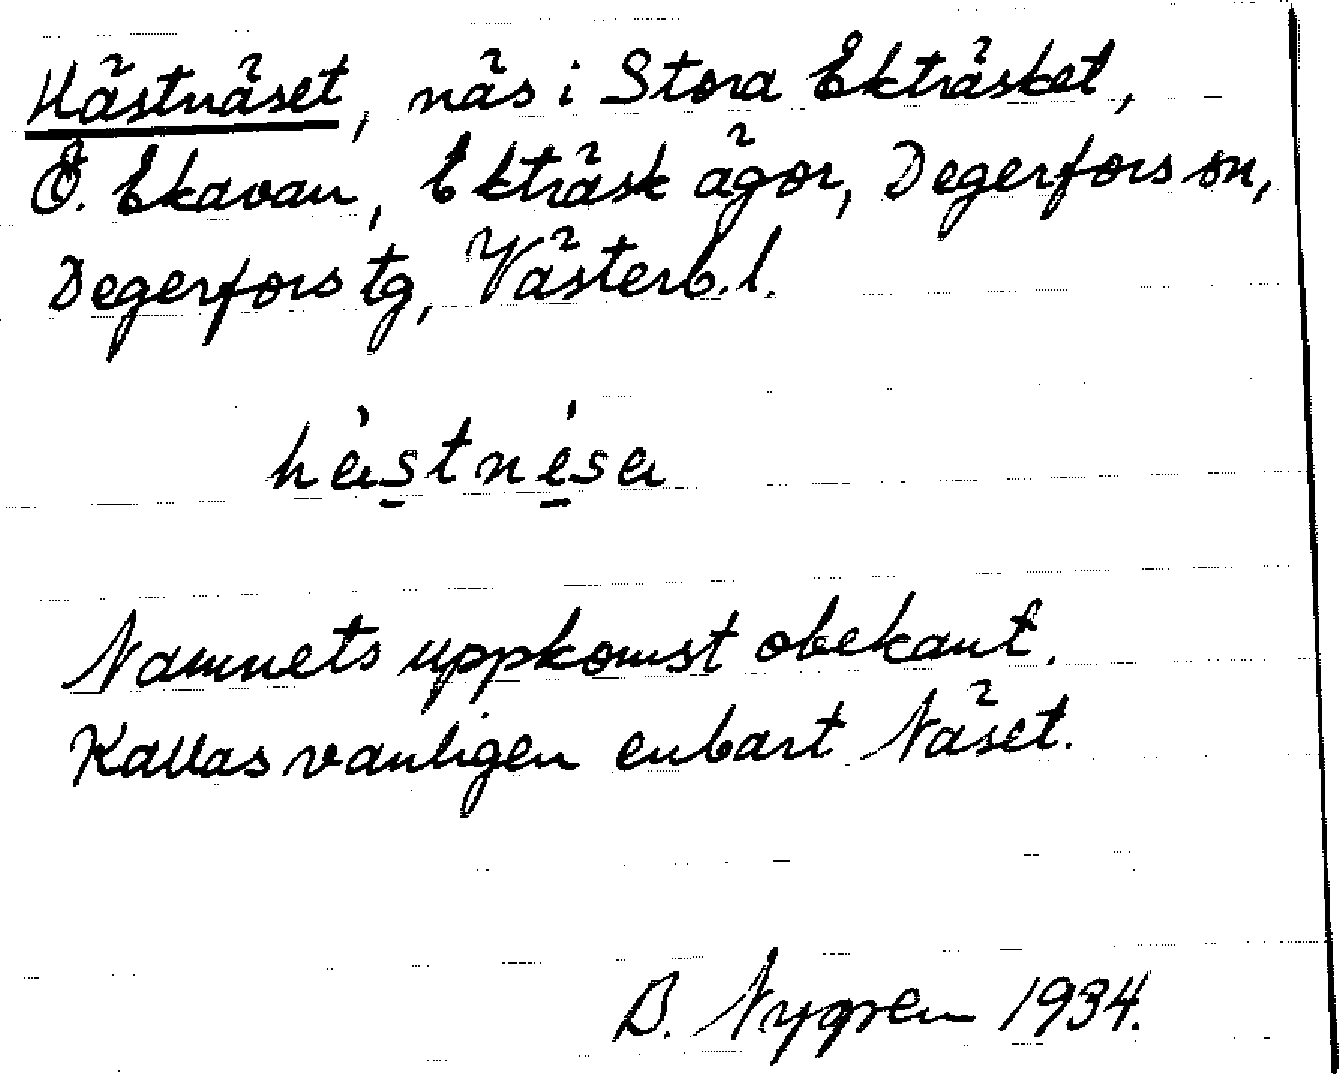 Hästnäset, näs i Stora Ekträsket,
Ö. Ekavan, Ekträsk ägor, Degerfors sn,
Degerfors tg, Västerb. l.
Namnets uppkomst obekant.
Kallas vanligen enbart Näset.
B. Nygren 1934.